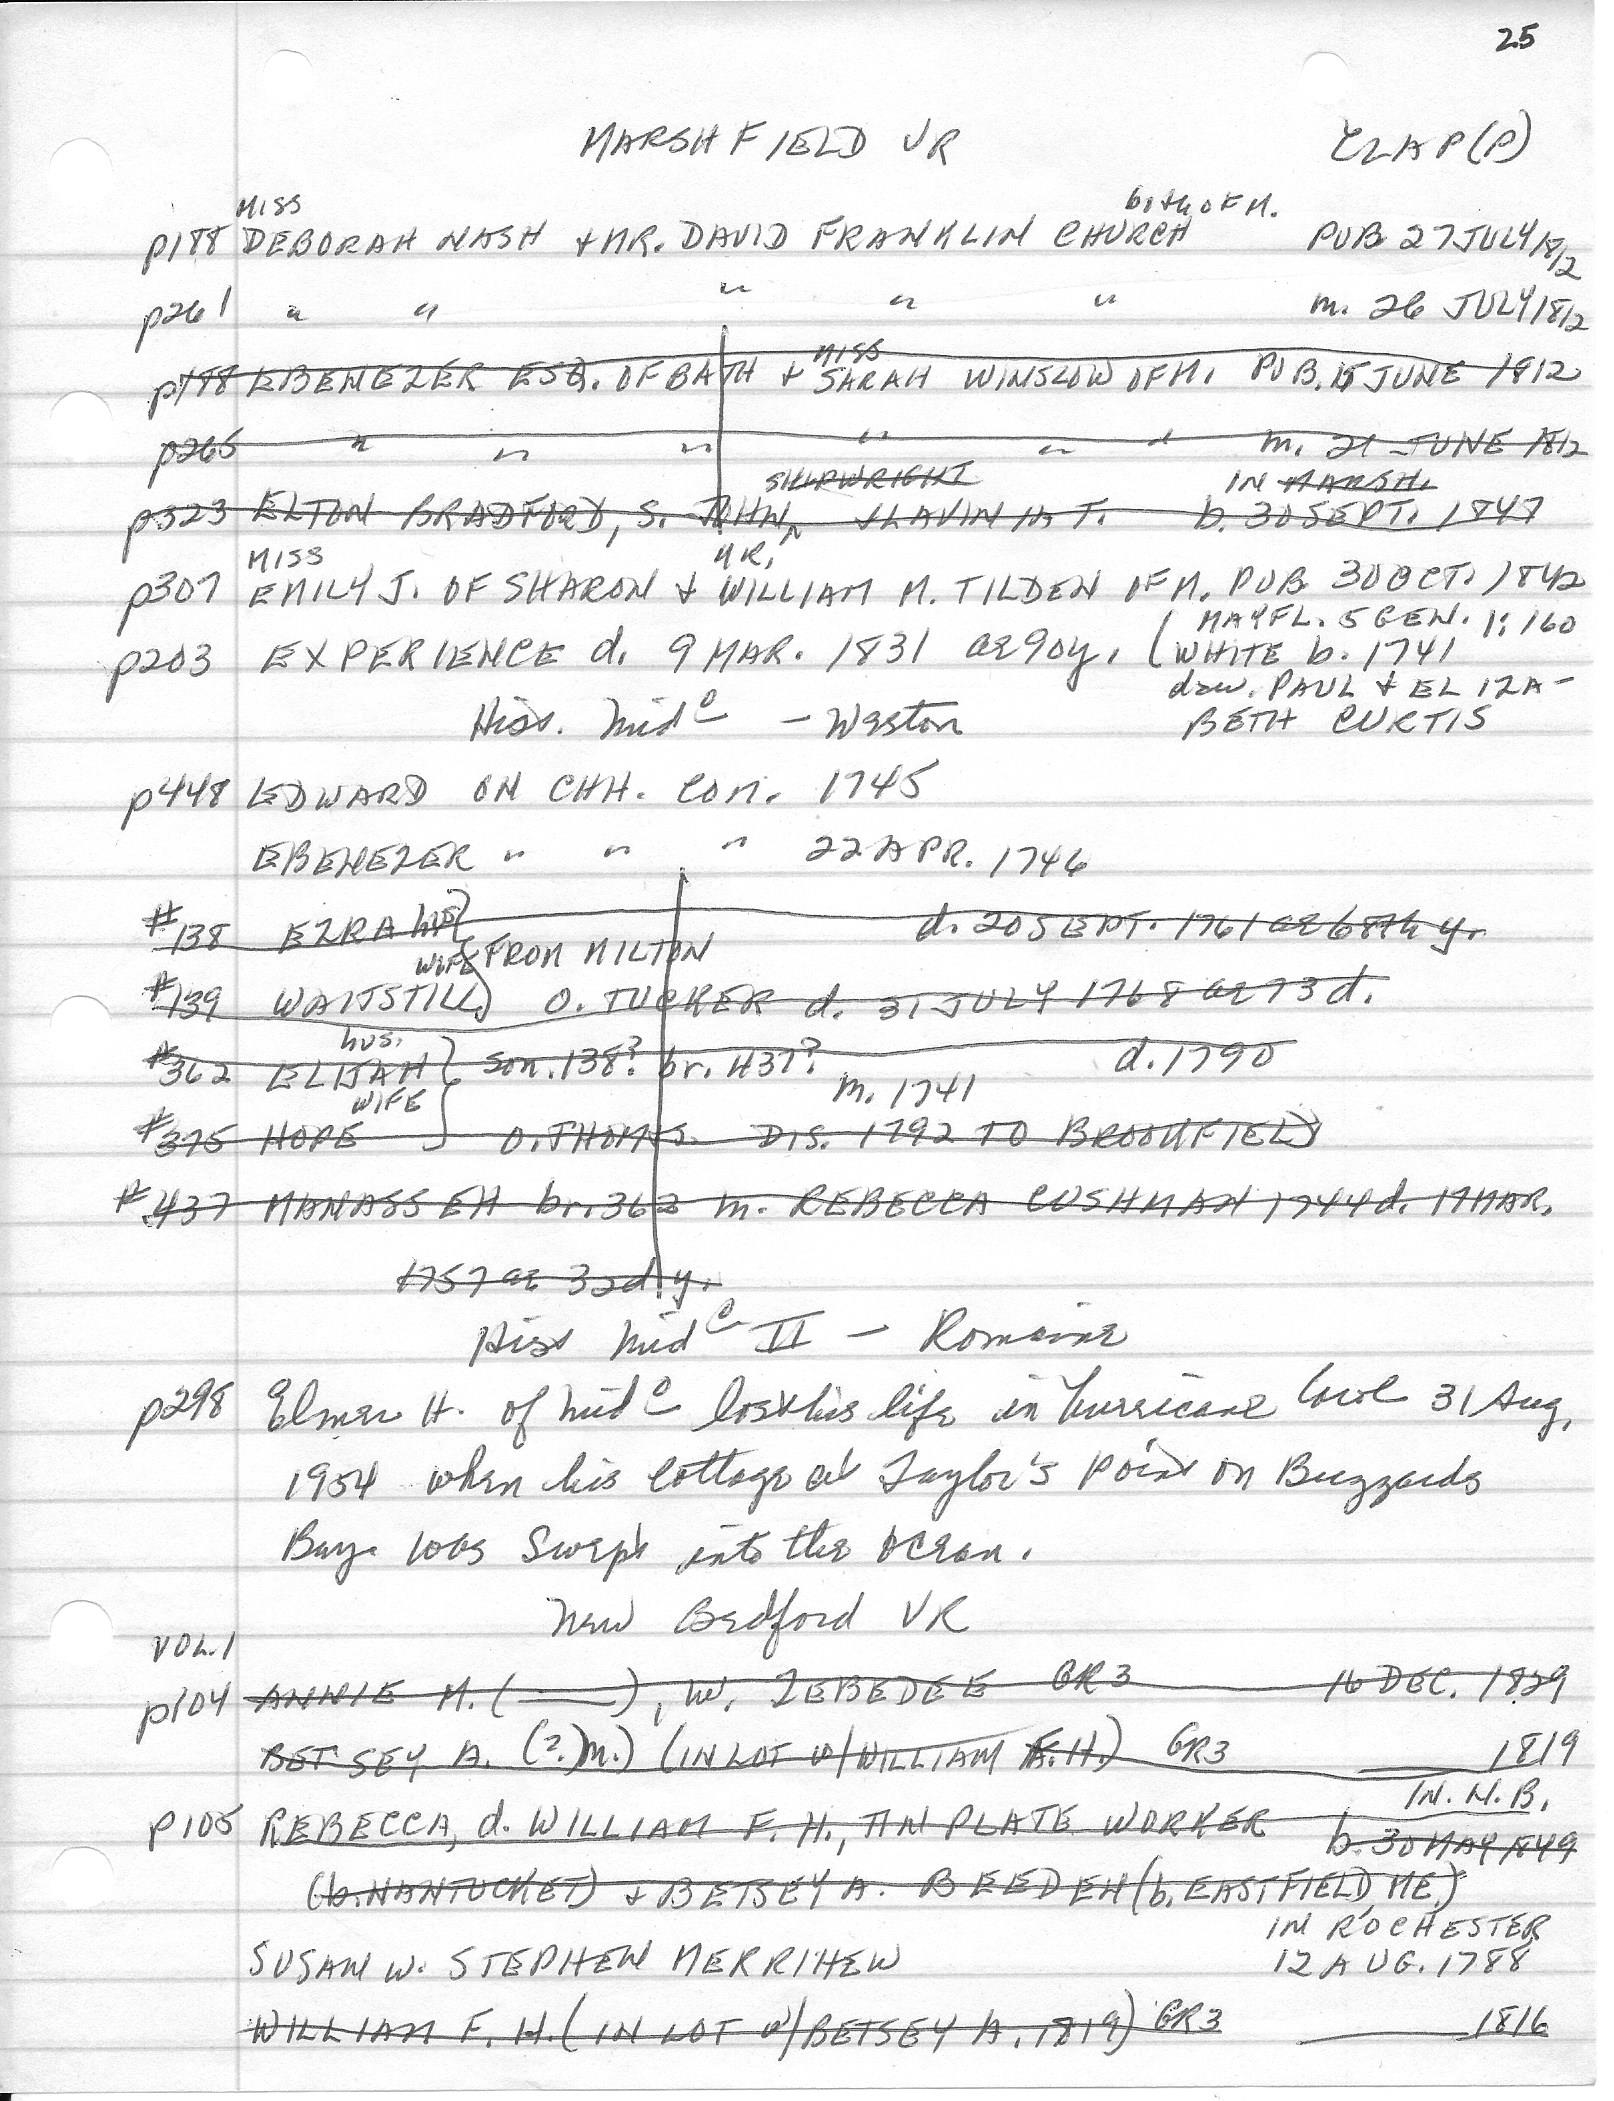 25
MARSHFIELD VR CLAP(P)
MISS both OF M.
p188 DEBORAH NASH + MR. DAVID FRANKLIN CHURCH PUB 27 JULY 1812
p261 " " " " " m. 26 JULY 1812
MISS
p188 EBENEZER ESQ. OF BATH + SARAH WINSLOW OF M. PUB. 15 JUNE 1812
p265 " " " " " " m. 21 JUNE 1812
SHIPWRIGHT IN MARSH.
p323 ELTON BRADFORD, S. JOHN, + LAVINIA T. b. 30 SEPT. 1847
MISS MR.
p307 EMILY J. OF SHARON + WILLIAM M. TILDEN OF M. PUB 30 OCT. 1842
( MAYFL. 5 GEN. 1:160
p203 EXPERIENCE d. 9 MAR. 1831 ae 90y. ( WHITE b. 1741
dau. PAUL + ELIZA-
Hist. Mid<sup>o</sup> - Weston BETH CURTIS
p448 EDWARD ON CHH. COM. 1745
EBENEZER " " " 22 APR. 1746
#138 EZRA hus d. 20 SEPT. 1761 ae 68th y.
WIFE } FROM MILTON
#139 WAITSTILL O. TUCKER d. 31 JULY 1768 ae 73 d.
hus.
#362 ELIJAH } son. 138? br. 437? d. 1790
WIFE m. 1741
#375 HOPE } O. THOMS. DIS. 1792 TO BROOKFIELD
#437 MANASSEH br. 362 m. REBECCA CUSHMAN 1744 d. 17 MAR.
1757 ae 32d y.
Hist Mid<sup>o</sup> II - Romaine
p298 Elmer H. of Mid<sup>o</sup> lost his life in hurricane Carol 31 Aug.
1954 when his cottage at Taylor's Point on Buzzards
Bay was swept into the ocean.
New Bedford VR
VOL. 1
p104 ANNIE M. (____), w. ZEBEDEE GR3 16 DEC. 1829
BETSEY A. (?.m.) (IN LOT w/ WILLIAM F. H.) GR3 ____ 1819
IN. N. B.
p105 REBECCA, d. WILLIAM F. H., TIN PLATE WORKER b. 30 MAY 1849
(b. NANTUCKET) + BETSEY A. BEEDEH (b. EASTFIELD, ME.)
IN ROCHESTER
SUSAN W. STEPHEN MERRIHEW 12 AUG. 1788
WILLIAM F. H. (IN LOT w/ BETSEY A. 1819) GR3 ____ 1816